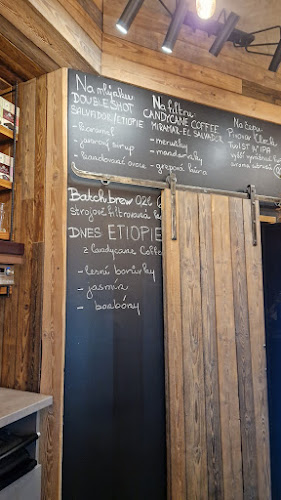 Na mlýnku
DOUBLESHOT
SALVADOR/ETIOPIE
- karamel
- javorový sirup
- kandované ovoce
Na filtru
CANDYCANE COFFEE
MIRAMAR-EL SALVADOR
- meruňky
- mandarinky
- grepová kůra
Na čepu
Pivovar Clock
TWIST W IPA
Batch brew 0,2l
strojově filtrovaná
DNES ETIOPIE
z Candycane Coffee
- lesní borůvky
- jasmín
- bonbóny